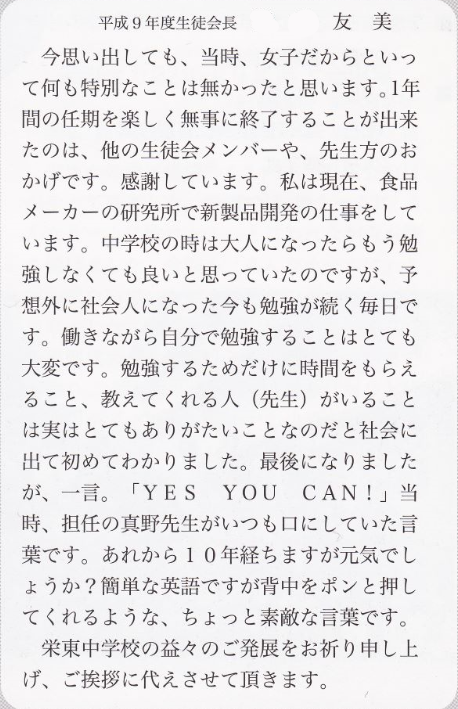 平成９年度生徒会長　友　美
　今思い出しても、当時、女子だからといっ
て何も特別なことは無かったと思います。1年
間の任期を楽しく無事に終了することが出来
たのは、他の生徒会メンバーや、先生方のお
かげです。感謝しています。私は現在、食品
メーカーの研究所で新製品開発の仕事をして
います。中学校の時は大人になったらもう勉
強しなくても良いと思っていたのですが、予
想外に社会人になった今も勉強が続く毎日で
す。働きながら自分で勉強することはとても
大変です。勉強するためだけに時間をもらえ
ること、教えてくれる人（先生）がいること
は実はとてもありがたいことなのだと社会に
出て初めてわかりました。最後になりました
が、一言。「ＹＥＳ　ＹＯＵ　ＣＡＮ！」当
時、担任の真野先生がいつも口にしていた言
葉です。あれから１０年経ちますが元気でし
ょうか？簡単な英語ですが背中をポンと押し
てくれるような、ちょっと素敵な言葉です。
　栄東中学校の益々のご発展をお祈り申し上
げ、ご挨拶に代えさせて頂きます。